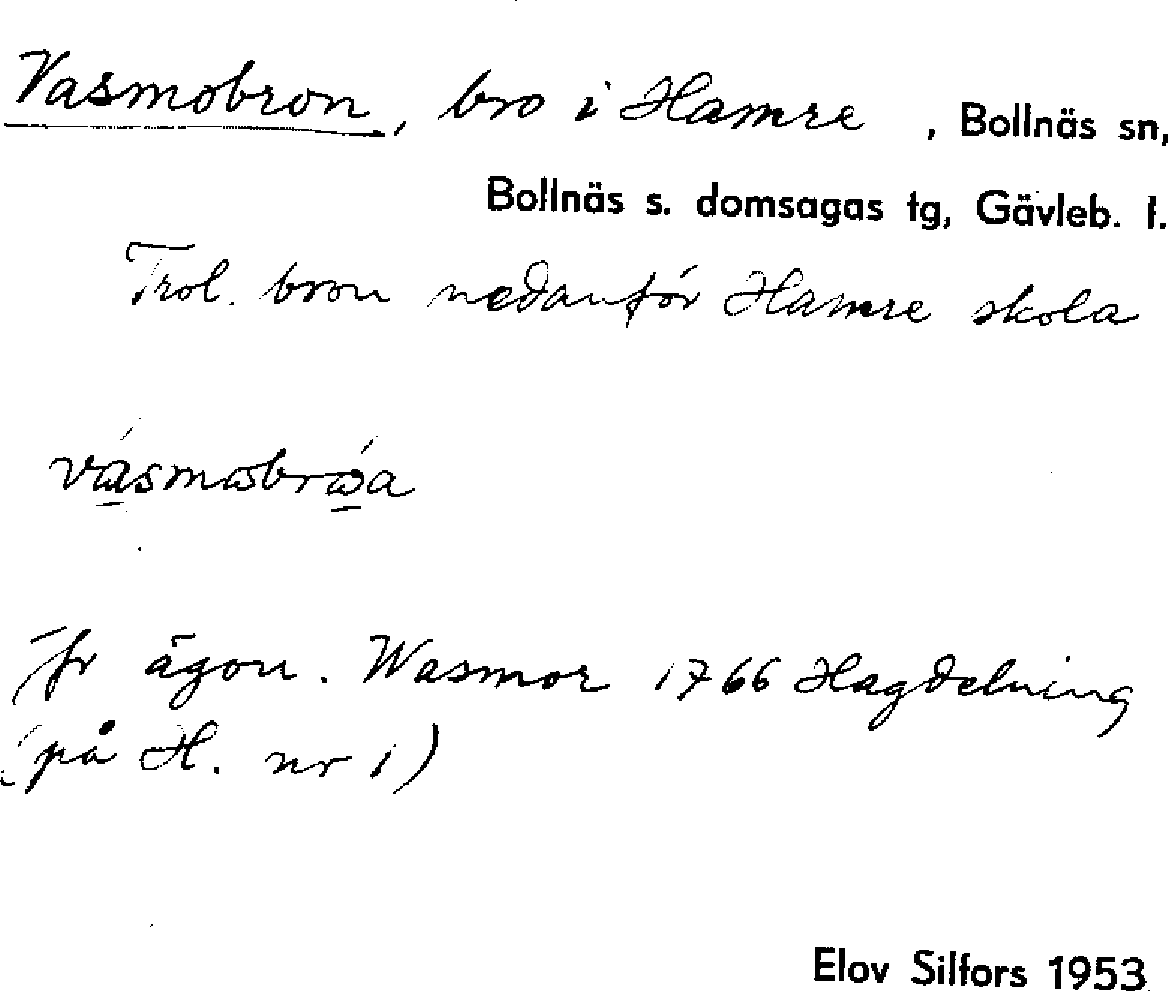 Vasmobron, bro i Hamre , Bollnäs sn,
Bollnäs s. domsagas tg, Gävleb. l.
Trol. bron nedanför Hamre skola
vásmωbrώ̱a
Jfr ägon. Wasmor 1766 Hagdelning
(på H. nr 1)
Elov Silfors 1953